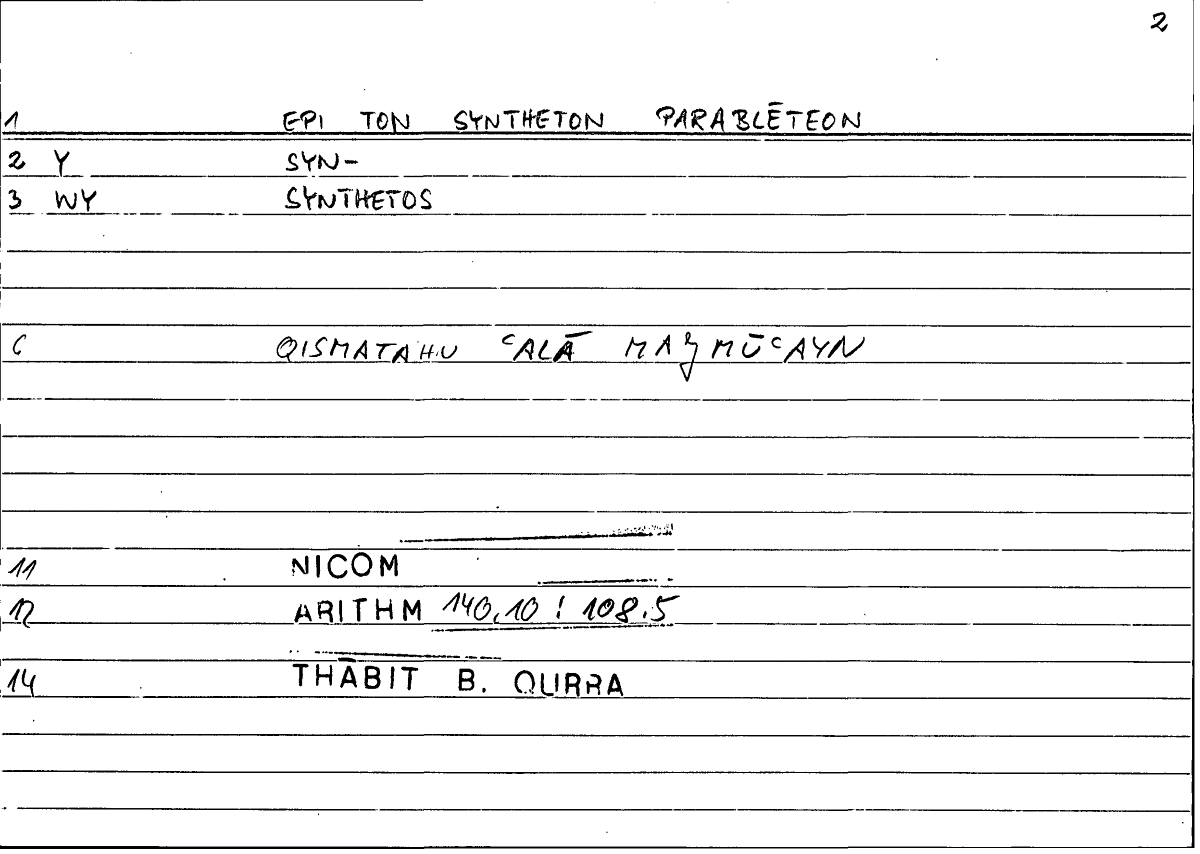 2
1 EPI TON SYNTHETON PARABLĒTEON
2 Y SYN-
3 WY SYNTHETOS
6 QISMATAHU ʿALĀ MAǧMŪʿAYN
11 NICOM
12 ARITHM 140.10 : 108.5
14 THĀBIT B. QURRA